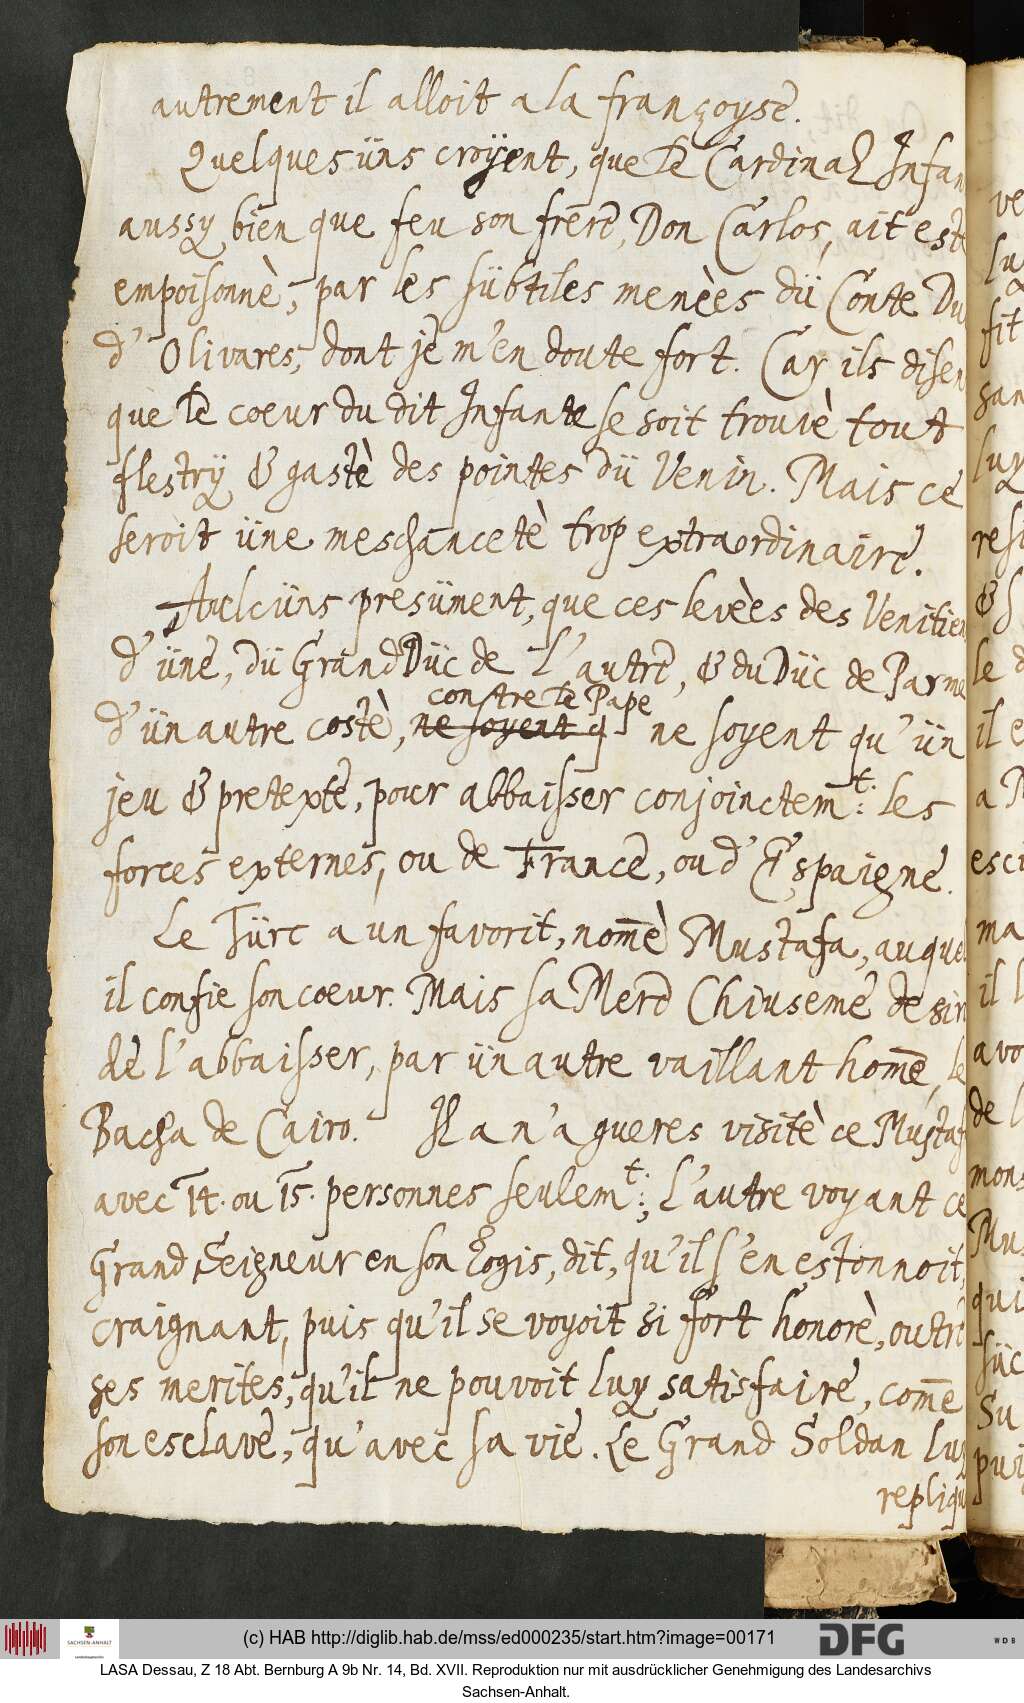 autrement il alloit a la françoyse.
Quelques üns croÿent, que le Cardinal Infan
aussy bien que feu son frere, Don Carlos, ait estè
empoisonnè, par les sübtiles menèes dü Conte Du
d'Olivares, dont je m'en doute fort. Car ils disen
que le coeur du dit Infante se soit trouvè tout
flestrÿ & gastè des pointes dü Venin. Mais ce
seroit üne meschancetè trop extraordinaire.
Aulcüns presüment, que ces levèes des Venitien
d'üne, dü Grand Düc de l'autre, & du Düc de Parme
contre le Pape
d'ün autre costè, ne soyent q ne soyent qu'ün
jeu & pretexte, pour abbaisser conjoinctem.t: les
forces externes, ou de France, ou d'Espaigne.
Le Türc a un favorit, nom̅è Mustafa, auquel
il confie son coeur. Mais sa Mere Chiuseme desir
de l'abbaisser, par ün autre vaillant hom̅e, le
Bacha de Cairo. Il a n'a gueres visitè ce Mustaf
avec 14. ou 15. personnes seulem.t:; l'autre voyant ce
Grand Seigneur en son logis, dit, qu'il s'en estonnoit,
craignant, puis qu'il se voyoit si fort honorè, outre
ses merites, qu'il ne pouvoit luy satisfaire, com̅e
son esclave, qu'avec sa vie. Le Grand Soldan luy
repliqu
ve
luy
fit
san
luy
& s
le d
il e
esci
ma
il l
avo
de l
mons
Mus
qui
süc
Su
pui
SACHSEN-ANHALT
(c) HAB http://diglib.hab.de/mss/ed000235/start.htm?image=00171
DFG
WDB
LASA Dessau, Z 18 Abt. Bernburg A 9b Nr. 14, Bd. XVII. Reproduktion nur mit ausdrücklicher Genehmigung des Landesarchivs
Sachsen-Anhalt.